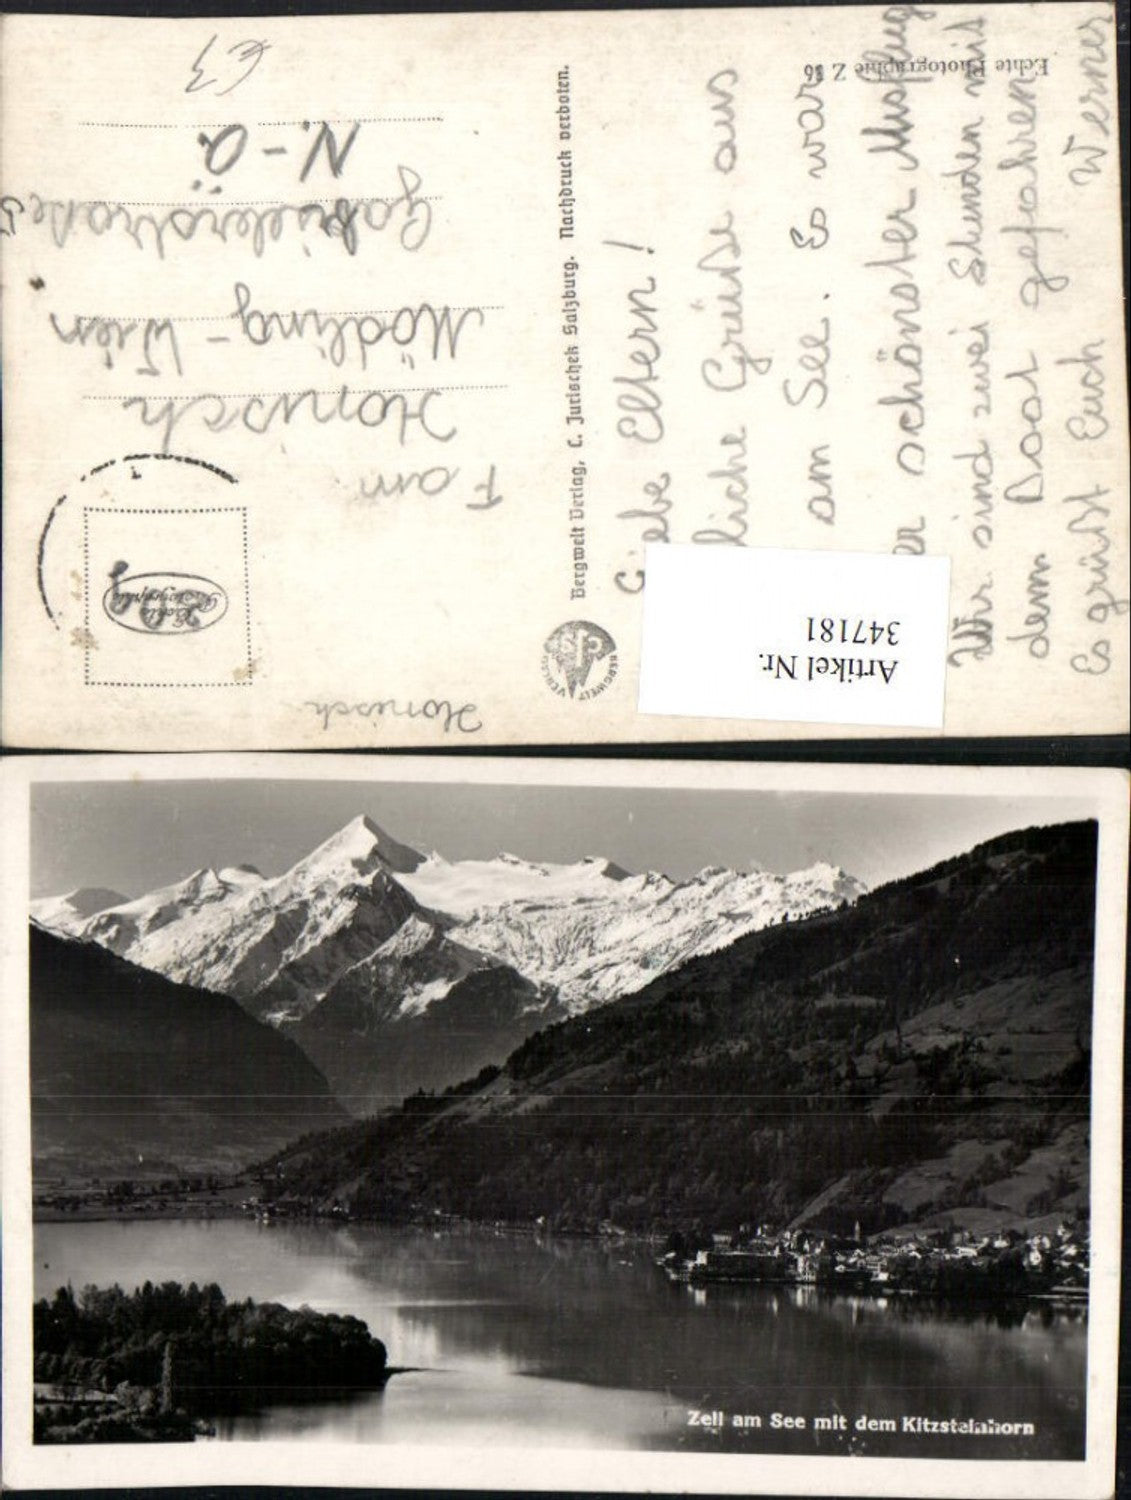 Liebe Eltern!
liche Grüße aus
am See. Es war
er schönster Ausflug
Wir sind zwei Stunden mit
dem Boot gefahren
Es grüßt Euch Werner
Echte Photographie Z 16
Artikel Nr.
347181
Bergwelt Verlag, C. Jurischek Salzburg. Nachdruck verboten.
BERGWELT VERLAG
Honisch
Echte
Photographie
Fam
Honisch
Mödling - Wien
Gabrielerstraße
N.-Ö.
€3
Zell am See mit dem Kitzsteinhorn